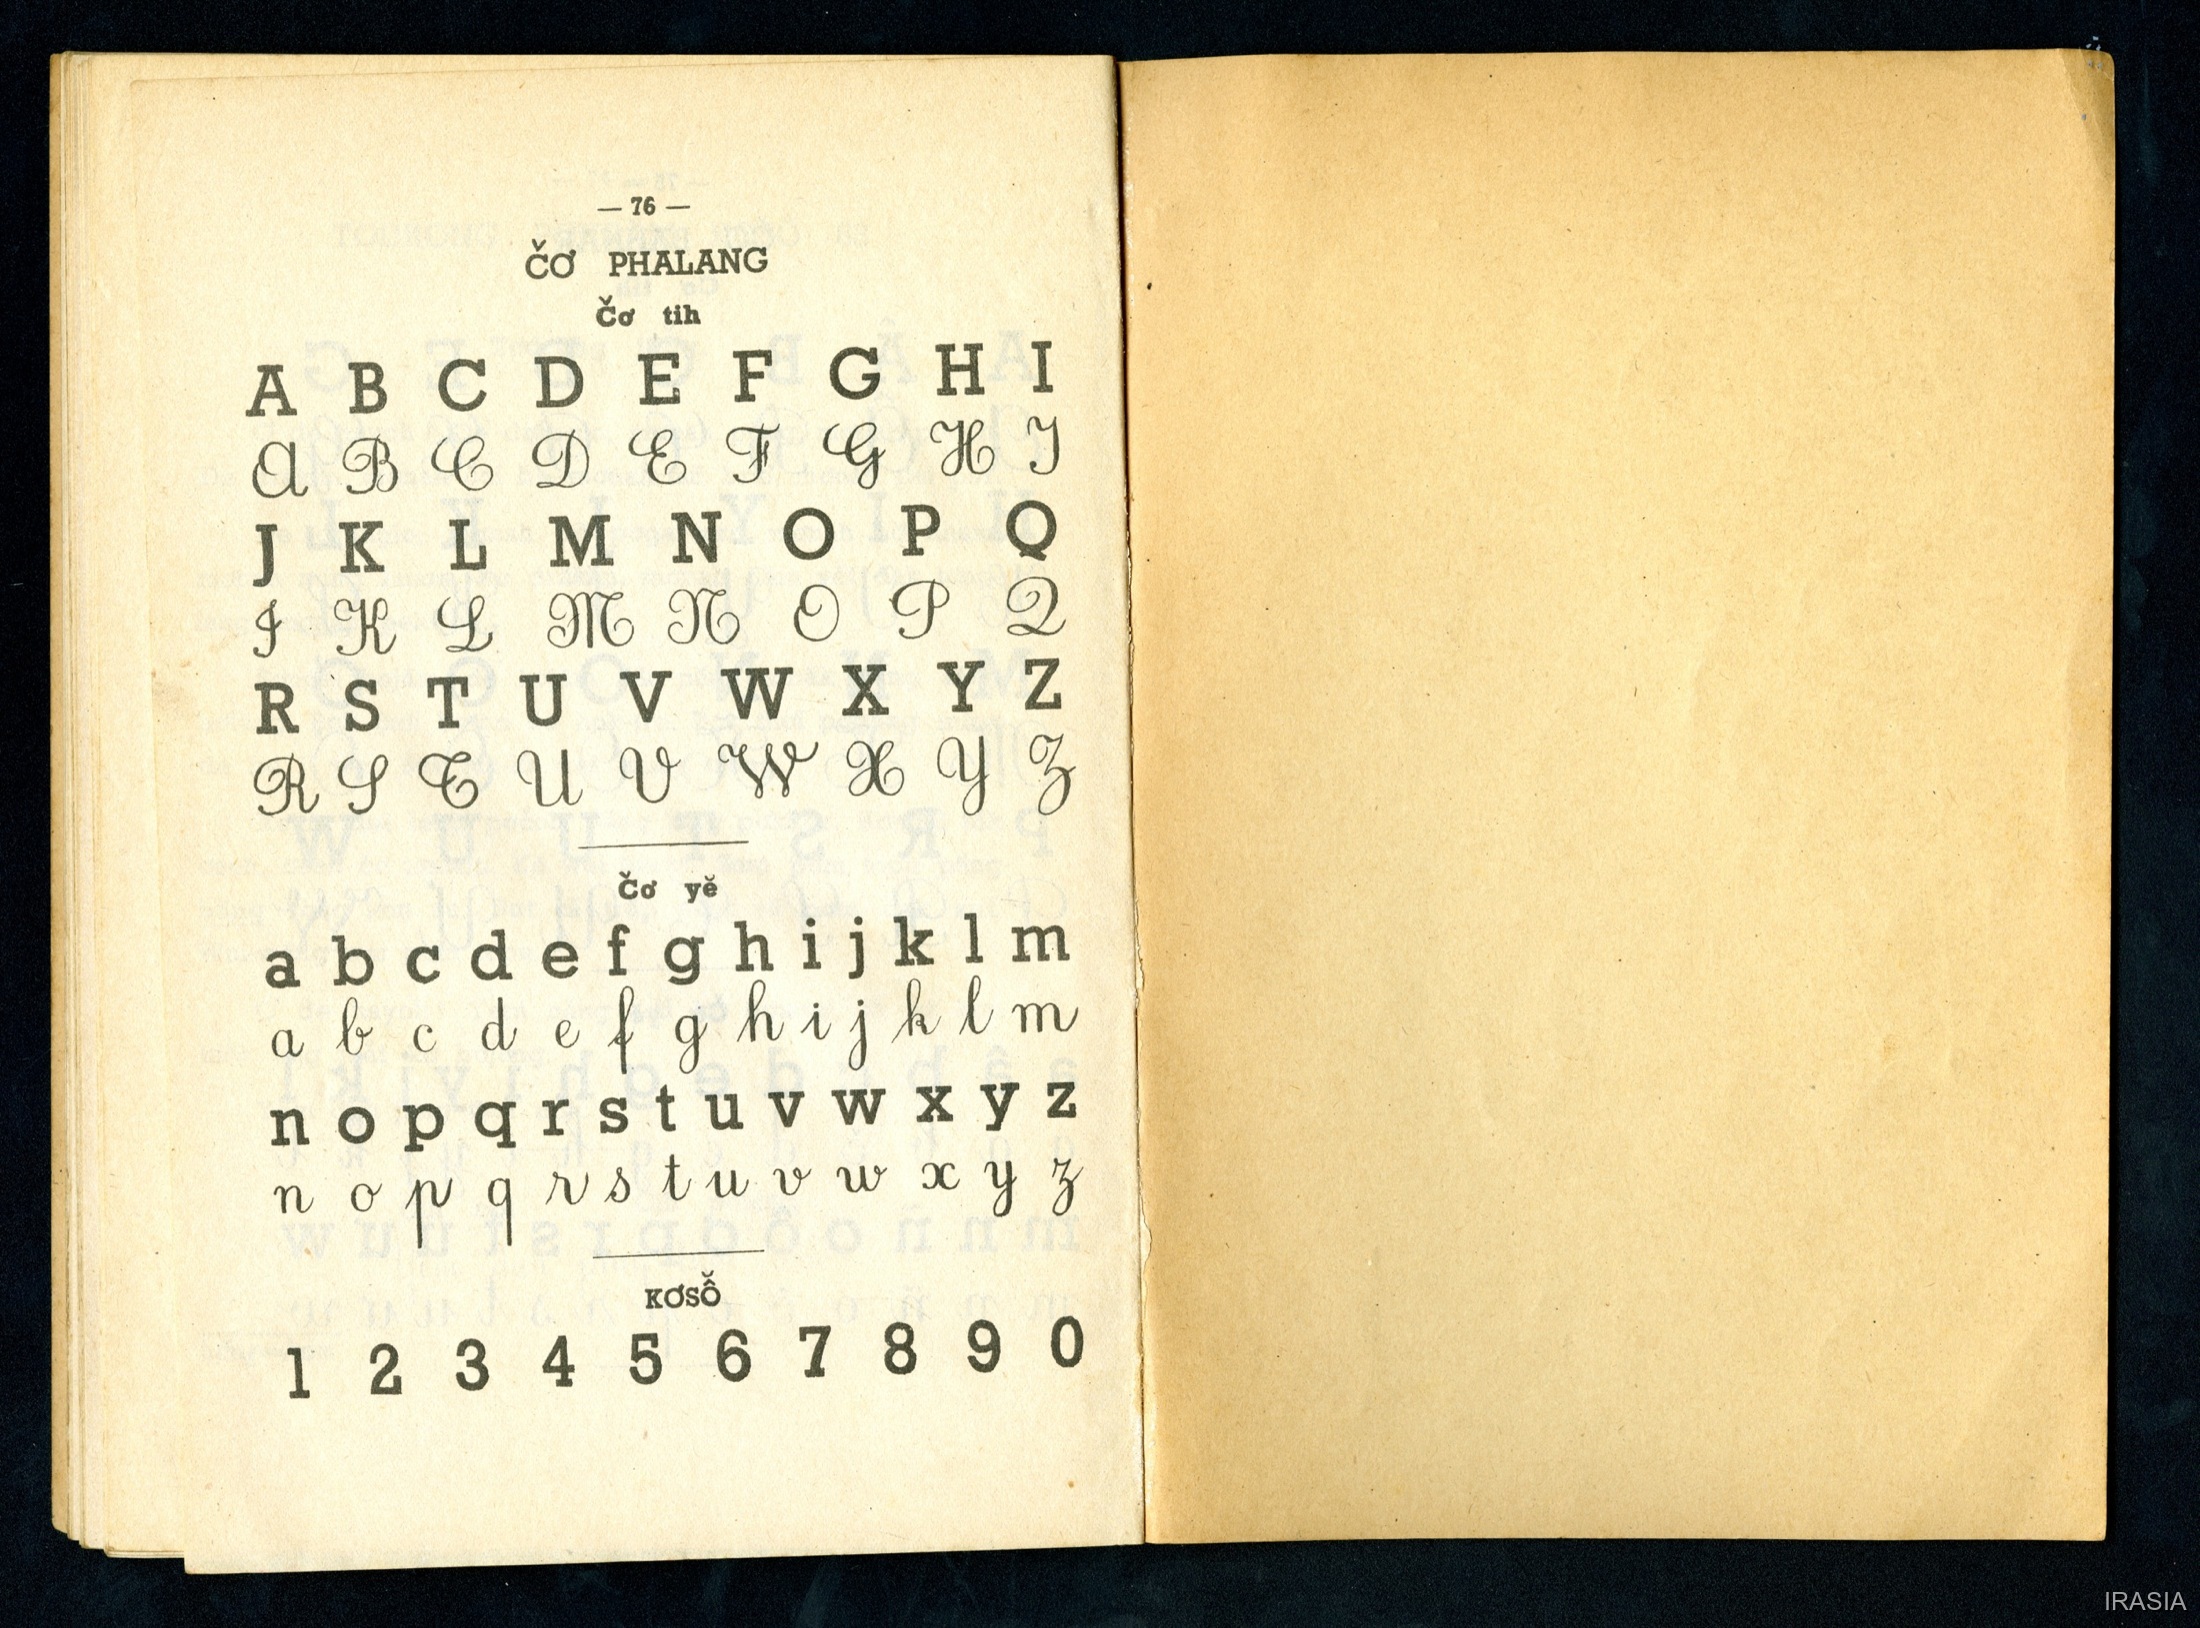 — 76 —
ČƠ PHALANG
Čơ tih
A B C D E F G H I
A B C D E F G H I
J K L M N O P Q
J K L M N O P Q
R S T U V W X Y Z
R S T U V W X Y Z
Čơ yĕ
a b c d e f g h i j k l m
a b c d e f g h i j k l m
n o p q r s t u v w x y z
n o p q r s t u v w x y z
KƠSÔ̆
1 2 3 4 5 6 7 8 9 0
IRASIA